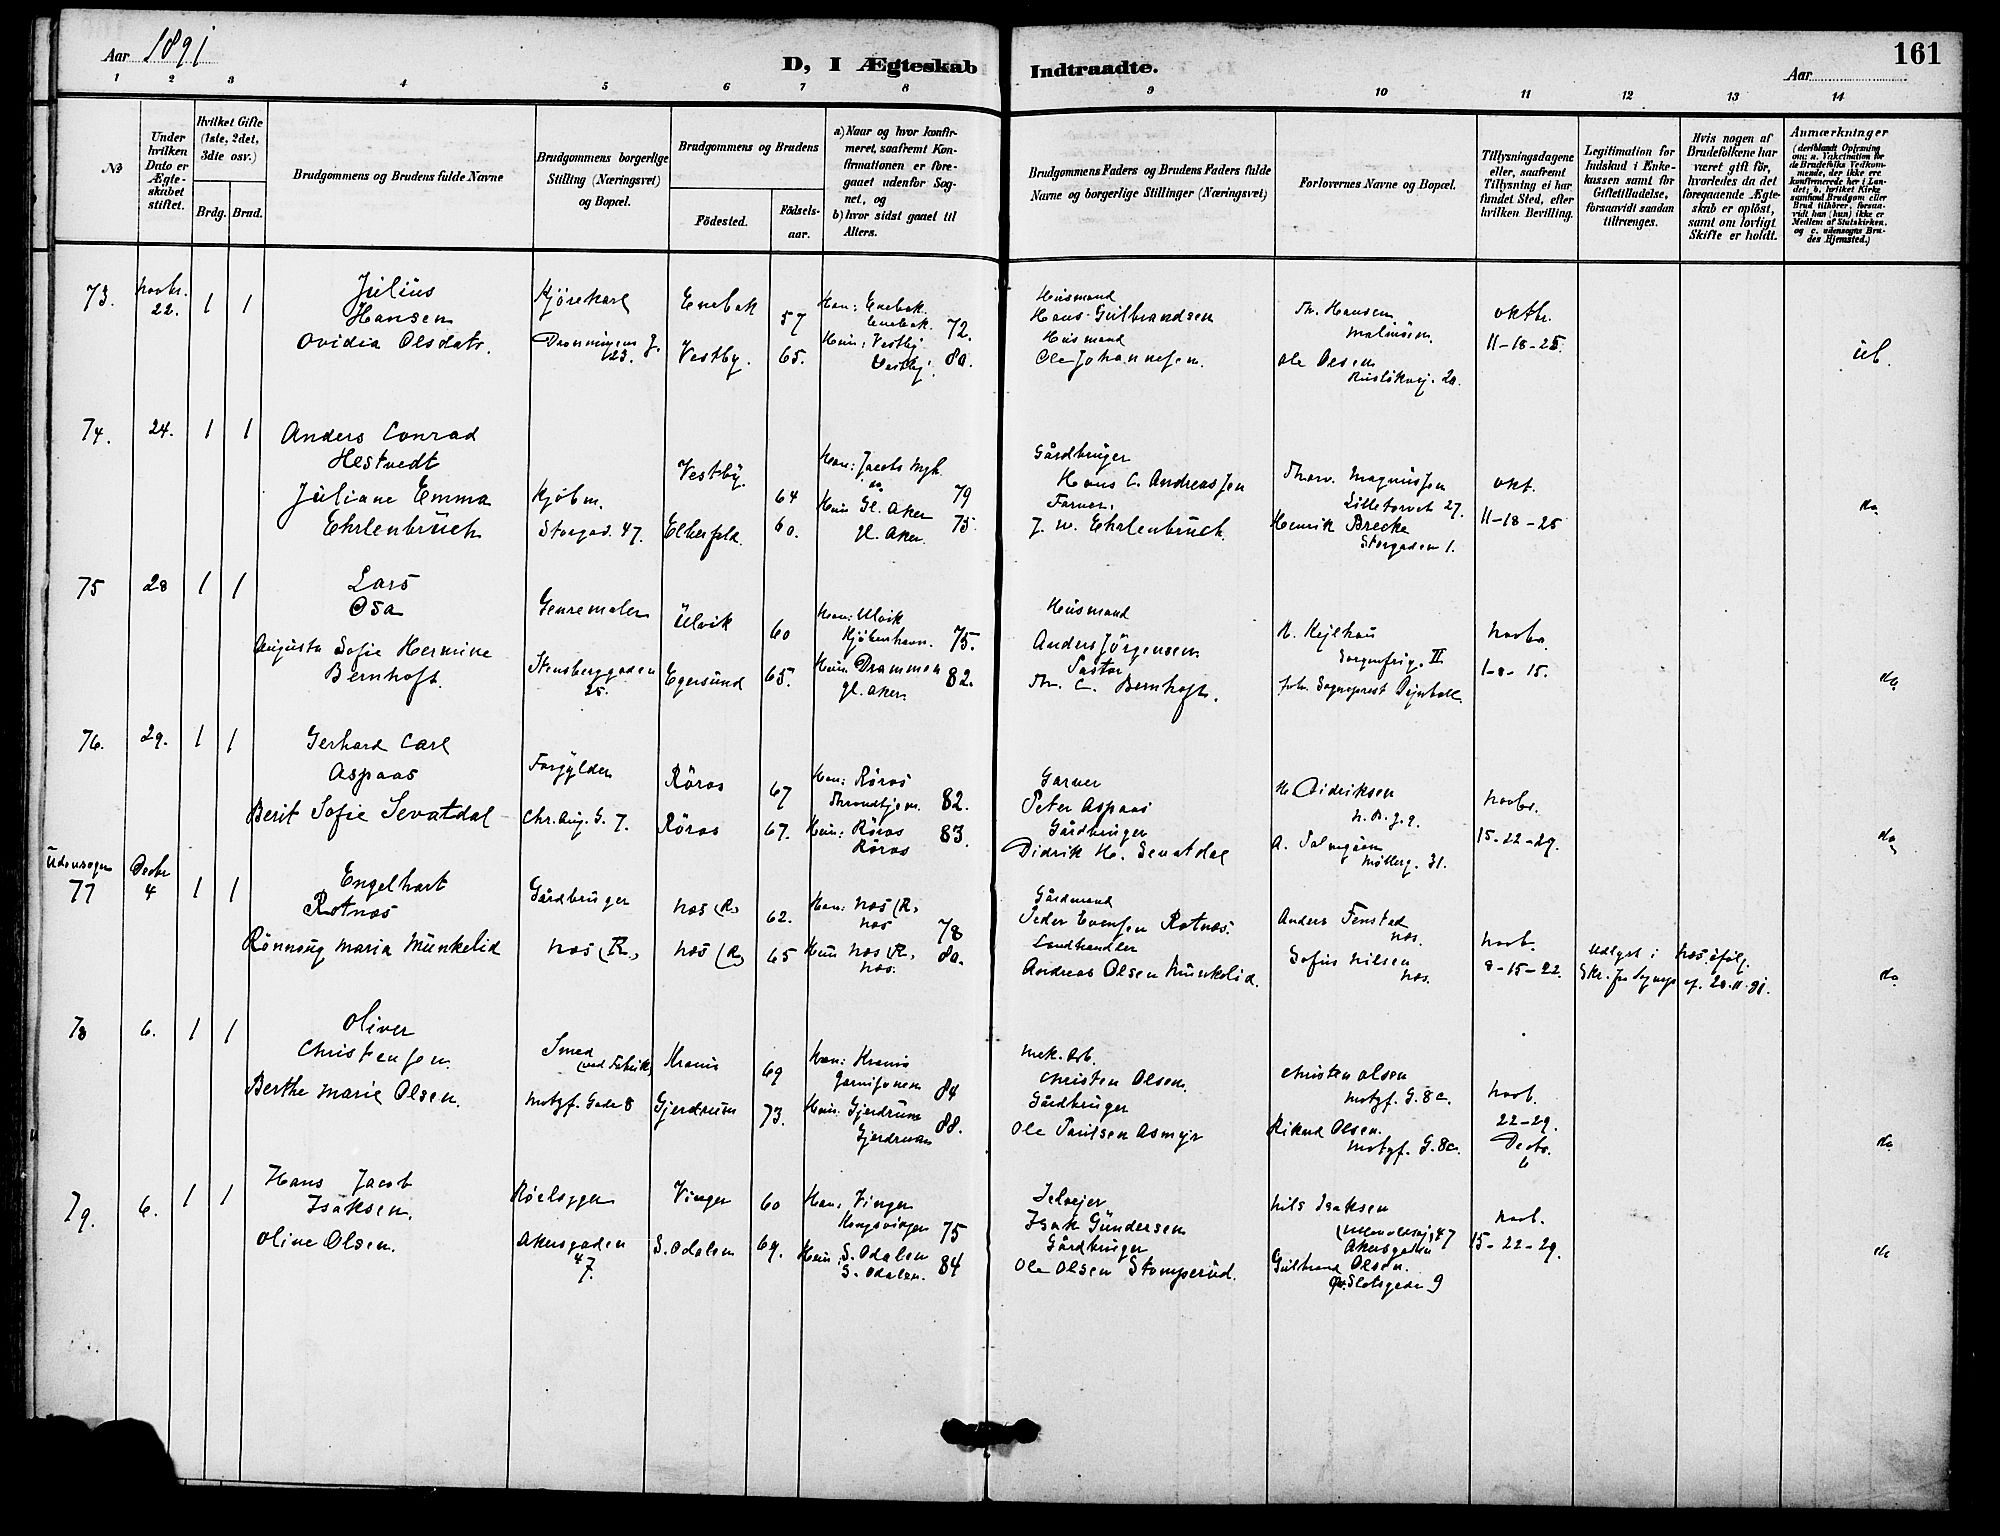 Aar 1891
D, I Ægteskab Indtraadte.
Aar
161
1 2 3 4 5 6 7 8 9 10 11 12 13 14
No
Under hvilken Dato er Ægteskabet stiftet.
Hvilket Gifte (1ste, 2det, 3die osv.)
Brdg. Brud.
Brudgommens og Brudens fulde Navne
Brudgommens borgerlige Stilling (Næringsvei) og Bopæl.
Brudgommens og Brudens
Födested.
Födselsaar.
a) Naar og hvor konfirmeret, saafremt Konfirmationen er foregaaet udenfor Sognet, og
b) hvor sidst gaaet til Alters.
Brudgommens Faders og Brudens Faders fulde Navne og borgerlige Stillinger (Næringsvei)
Forlovernes Navne og Bopæl.
Tillysningsdagene eller, saafremt Tillysning ei har fundet Sted, efter hvilken Bevilling.
Legitimation for Indskud i Enkekassen samt for Giftetilladelse, forsaavidt saadan tiltrænges.
Hvis nogen af Brudefolkene har været gift för, hvorledes da det foregaaende Ægteskab er oplöst, samt om lovligt Skifte er holdt.
Anmærkninger (deriblandt Oplysning om: a. Vakcination for de Brudefolks Vedkommende, der ikke ere konfirmerede her i Landet; b. hvilket Kirkesamfund Brudgom eller Brud tilhörer, forsaavidt han (hun) ikke er Medlem af Statskirken, og c. udensogns Brudes Hjemsted.)
73. Novbr. 22. 1 1
Julius
Hansen
Ovidia Olsdatr.
Kjørekarl
Dronningens g. 23.
Enebak 57
Vestby. 65.
Han: Enebak.
Enebak. 72.
Hun: Vestby
Vestby. 80.
Husmand
Hans Gulbrandsen
Husmand
Ole Johannesen.
Th. Hansen
Ole Olsen
20.
Oktbr.
11-18-25
74. 24. 1 1
Anders Conrad
Hestvedt
Juliane Emma
Ehrlenbruch
Kjøbm.
Storgad. 47.
Vestby. 64
Elberfeld. 60.
Han: Jacobs
do 79
Hun Gl. Aker
gl. Aker. 75.
Gårdbruger
Hans C. Andreassen
Farver.
J. W. Ehrlenbruch.
Thorv. Magnussen
Lilletorvet 27.
Henrik Brecke
Storgaden 1.
Okt.
11-18-25
do
75 28 1 1
Lars
Osa
Augusta Sofie Hermine
Bernhoft.
Genremaler
Stensberggaden
25.
Ulvik 60
Egersund 65.
Han: Ulvik
Kjøbenhavn. 75.
Hun Drammen
gl. Aker. 82.
Husmand
Anders Jörgensen
Pastor
Th. C. Bernhoft.
H. Kejlhau
Sorgenfrig. II
Novbr.
1-8-15.
do
76. 29. 1 1
Gerhard Carl
Aspaas
Berit Sofie Sevatdal
Forgylder
Chr. Aug. G. 7.
Röros 67
Röros 67.
Han: Röros
Throndhjem. 82.
Hun: Röros
Röros 83.
Garver
Peter Aspaas
Gårdbruger
Didrik H. Sevatdal
H. Didriksen
Møllerg. 31.
Novbr.
15-22-29.
do
Udensogns
77 Decbr 4 1 1
Engelhart
Rotnæs
Rönnaug Maria Munkelid
Gårdbruger
Næs (R.)
Næs (R.) 62.
Næs (R.) 65
Han: Næs (R.)
Næs 78
Hun Næs (R.)
Næs. 80.
Gårdmand
Peder Evensen Rotnæs.
Landhandler
Andreas Olsen Munkelid.
Anders Fenstad
Næs.
Sofus Nilsen
Næs.
Novb.
8-15-22.
Udlyst i Næs ifølg.
Skr. fra Sognepr. af 20-11-91.
do
78 6. 1 1
Oliver
Christensen.
Berthe Marie Olsen.
Smed
(ved Fabrik)
Motzf. Gade 8
69
Gjerdrum 73.
Garnisonen 84
Hun: Gjerdrum
Gjerdrum 88.
Mek. Arb.
Christen Olsen.
Gårdbruger
Ole Paulsen Asmyr
Christen Olsen
Motzf. G. 8c.
Rikard Olsen.
Motzf. G. 8c.
Novb.
22-29.
Decbr.
6
do
79. 6. 1 1
Hans Jacob
Isaksen.
Oline Olsen.
Akersgaden
47.
Vinger 60
S. Odalen 69.
Han: Vinger
Kongsvinger 75
Hun S. Odalen
S. Odalen. 84
Selvejer
Isak Gundersen
Gårdbruger
Ole Olsen Stomperud.
Nils Isaksen
Akersgaden 47
Gulbrand Olsen.
Slotsgade 9
Novb.
15-22-29.
do